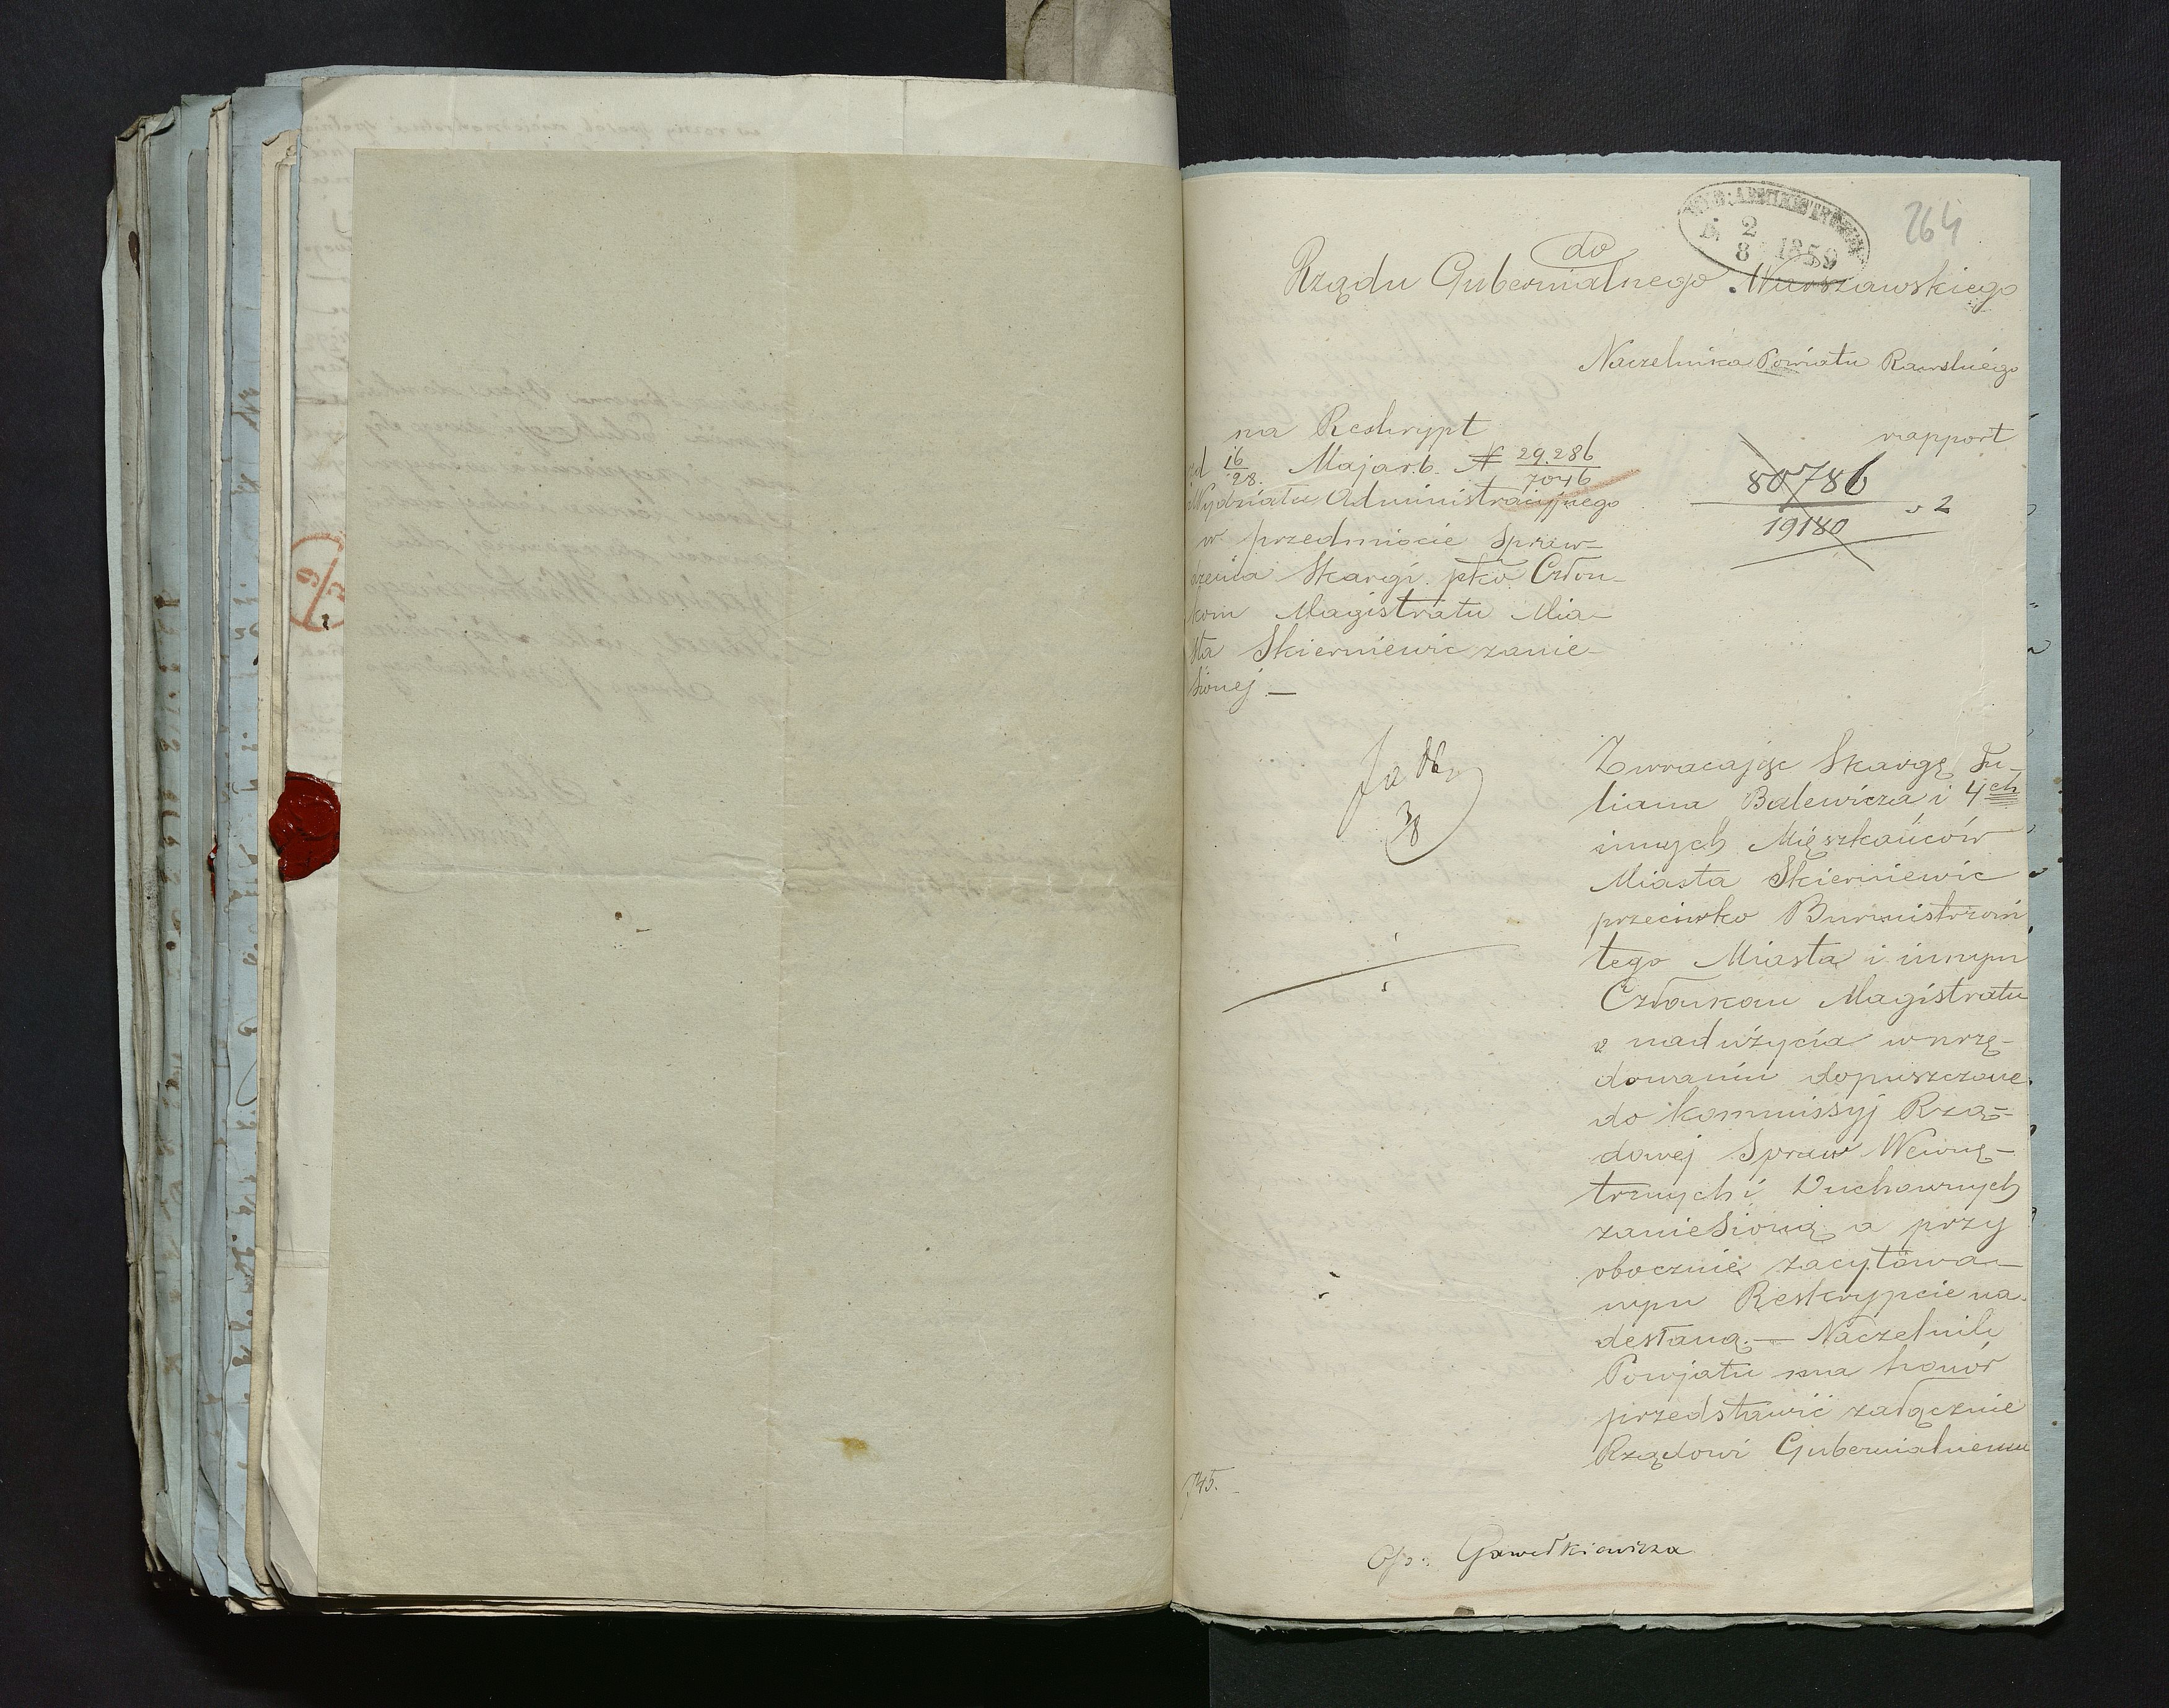 264
WYD: ADMINISTRACYJNY
D. 2/8 1859
do
Rządu Gubernialnego Warszawskiego
Naczelnika Powiatu Rawskiego
rapport
na Reskrypt
z d 16/28. Maja r.b. N 29.286/7046
Wydziału Administracyjnego
w przedmiocie Spraw-
dzenia Skargi pko Człon-
kom Magistratu Mia-
sta Skierniewic zanie-
sionej. —
80786/19180
3/8
Zwracając Skargę Ju-
liana Balewicza i 4ch
innych Mięszkańców
Miasta Skierniewic
przeciwko Burmistrzowi
tego Miasta i innym
Członkom Magistratu
o nadużycia w urzę-
dowaniu dopuszczone
do Kommissyj Rzą-
dowej Spraw Wewnę-
trznych i Duchownych
zaniesioną a przy
obocznie zacytowa-
nym Reskrypcie na-
desłaną. — Naczelnik
Powjatu ma honor
przedstawić załącznie
Rządowi Gubernialnemu
745.
Gawełkiewicza